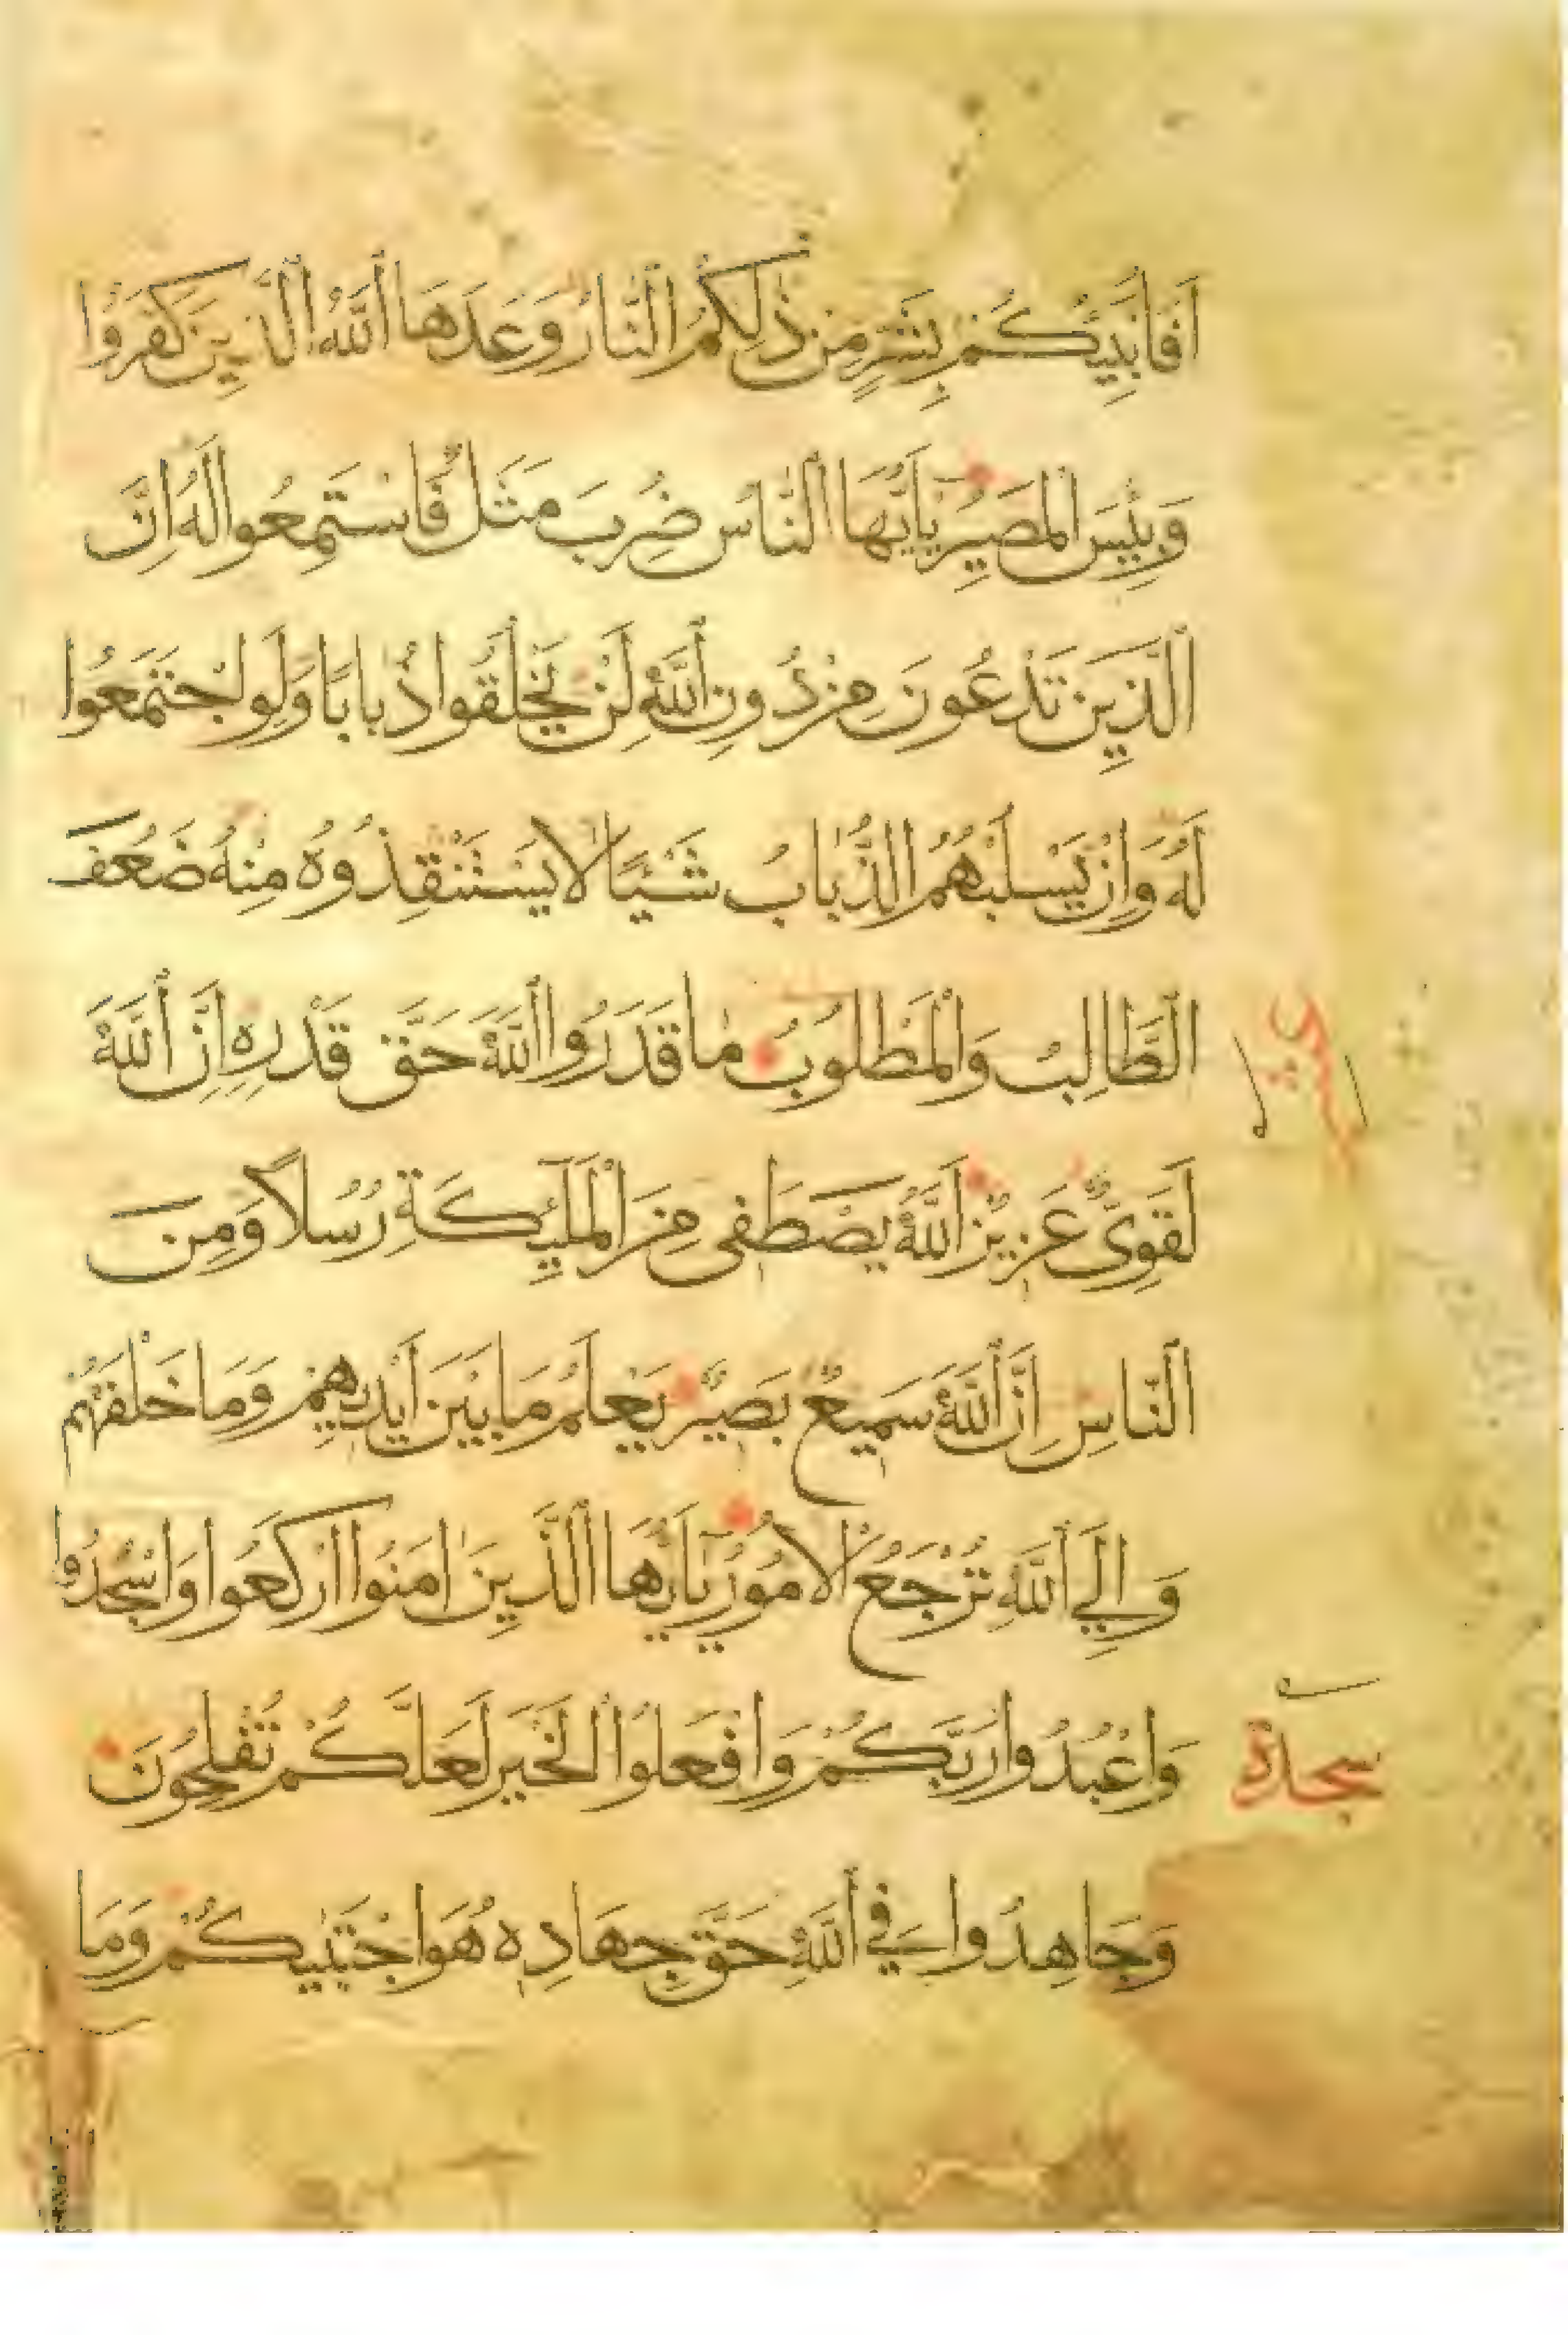 اَفَاُنَبِّئُكُمْ بِشَرٍّ مِنْ ذٰلِكُمُ النَّارُ وَعَدَهَا اللّٰهُ الَّذِينَ كَفَرُوْا
وَبِئْسَ الْمَصِيْرُ يٰاَيُّهَا النَّاسُ ضُرِبَ مَثَلٌ فَاسْتَمِعُوا لَهُ اِنَّ
الَّذِيْنَ تَدْعُونَ مِنْ دُونِ اللّٰهِ لَنْ يَخْلُقُوا ذُبَابًا وَلَوِ اجْتَمَعُوا
لَهُ وَاِنْ يَسْلُبْهُمُ الذُّبَابُ شَيْئًا لَا يَسْتَنْقِذُوهُ مِنْهُ ضَعُفَ
الطَّالِبُ وَالْمَطْلُوْبُ مٰا قَدَرُوا اللّٰهَ حَقَّ قَدْرِهِ اِنَّ اللّٰهَ
لَقَوِيٌّ عَزِيْزٌ اَللّٰهُ يَصْطَفِى مِنَ الْمَلٰٓئِكَةِ رُسُلًا وَمِنَ
النَّاسِ اِنَّ اللّٰهَ سَمِيعٌ بَصِيْرٌ يَعْلَمُ مَا بَيْنَ اَيْدِيهِمْ وَمَا خَلْفَهُمْ
وَاِلَي اللّٰهِ تُرْجَعُ الْاُمُوْرُ يٰٓاَيُّهَا الَّذِينَ اٰمَنُوا ارْكَعُوا وَاسْجُدُوا
وَاعْبُدُوا رَبَّكُمْ وَافْعَلُوا الْخَيْرَ لَعَلَّكُمْ تُفْلِحُوْنَ
سجدة
وَجَاهِدُوا فِي اللّٰهِ حَقَّ جِهَادِهِ هُوَ اجْتَبٰيكُمْ وَمَا